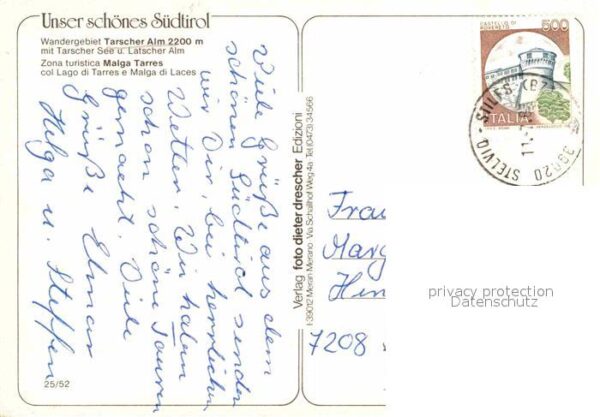 Unser schönes Südtirol
Wandergebiet Tarscher Alm 2200 m
mit Tarscher See u. Latscher Alm
Zona turistica Malga Tarres
col Lago di Tarres e Malga di Laces
Viele Grüße aus dem
schönen Südtirol senden
wir Dir, bei herrlichen
Wetter. Wir haben
schon schöne Touren
gemacht. Viele
Grüße Elmar
Helga u. Steffen
25/52
Verlag foto dieter drescher Edizioni
I-39012 Meran Merano Via Schaffhof Weg 4a Tel.(0473) 34566
CASTELLO DI
ROVERETO
500
ITALIA
39020 STELVIO - STILFS (BZ)
Frau
Marg
Hin
7208
privacy protection
Datenschutz